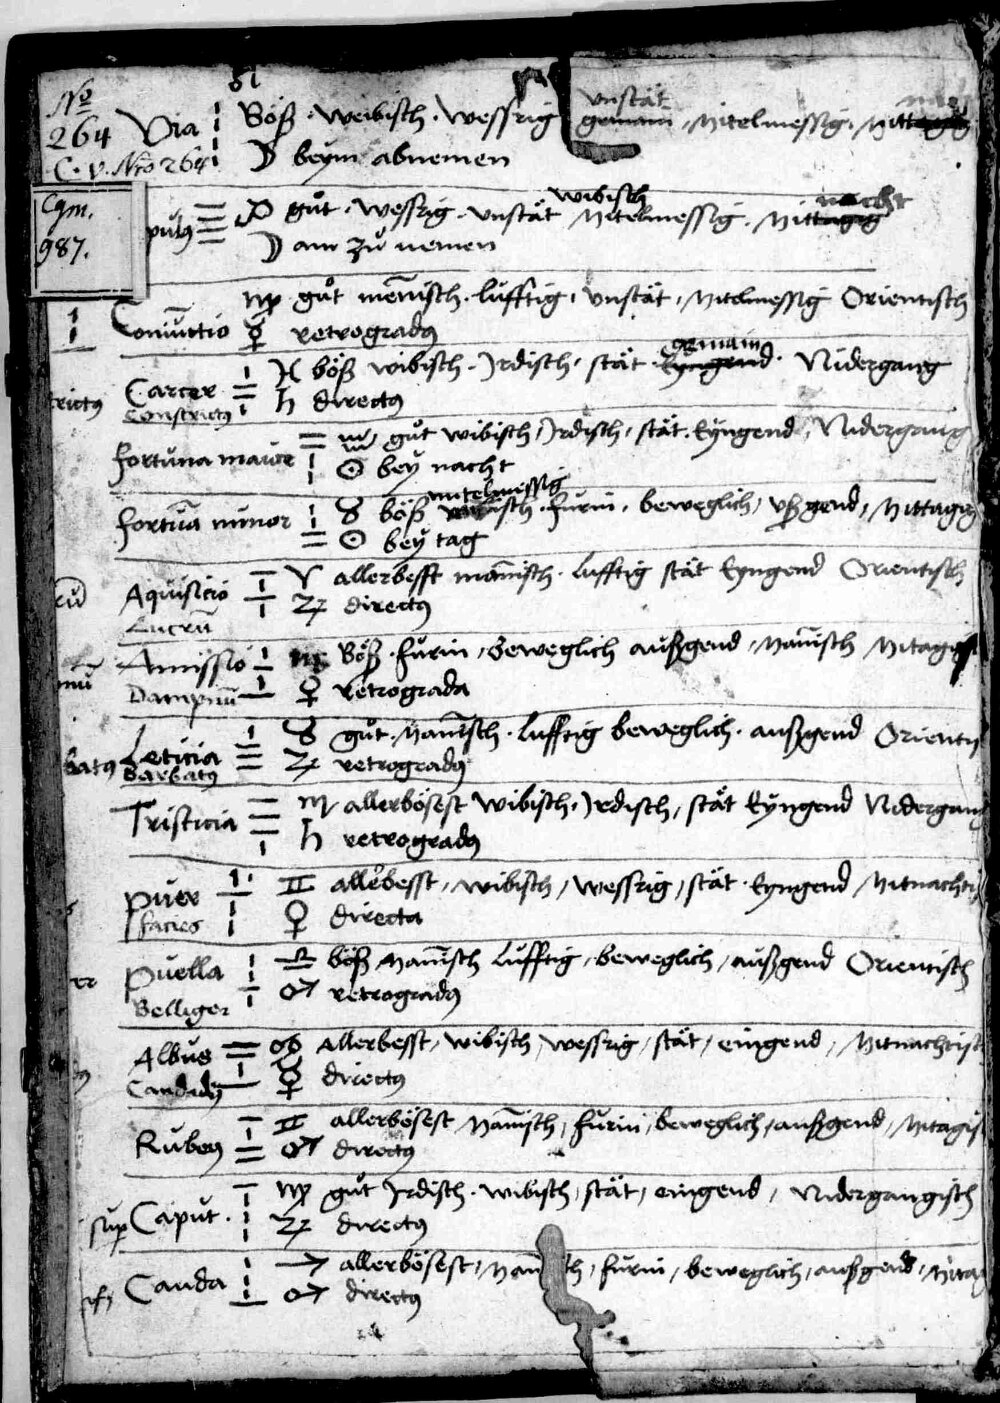 No
264
C. v. No 264
Cgm.
987.
Via Böß . weibisch . wessrig unstät gemain , Mitelmessig,
☽ beym abnemen
pulus gůt . wessrig . unstät wibisch Mitelmessig . Mittagig nacht
☽ am zů nemen
Coniunctio ♍ gůt menisch . lufftig , unstät , Mitelmessig Orientisch
☿ retrogradus
rictus Carcer ♓ böß wibisch . Irdisch , stät . gemain Eyngend . Nidergang
Constrictus ♄ directus
fortuna maior gůt wibisch , Irdisch , stät . Eyngend , Nidergang
☉ bey nacht
mitelmessig
fortuna minor ♉ böß furin , beweglich , ußgend , Mittagig
☉ bey tag
Aquisicio ♈ allerbesst manisch . lufftig stät Eyngend Orientisch
Lucru ♃ directus
Amissio Böß . furin , beweglich außgend , Manisch Mitagig
Dampnu ♀ retrograda
batus Leticia ♉ gůt . Manisch . lufftig beweglich . außgend Orientis
Barbatus ♃ retrogradus
Tristicia ♏ allerbösest wibisch , Irdisch , stät Eyngend Nidergang
♄ retrogradus
puer ♊ allerbesst , wibisch , wessrig , stät . Eyngend Mitnachti
facies ♀ directa
er puella ♎ böß Manisch Lufftig , beweglich , außgend Orientisch
Belliger ♂ retrogradus
Albus ♋ Allerbesst , wibisch , wessrig , stät , eingend , Mitnachtisc
Candidus ☿ directus
Rubeus ♊ allerbösest Manisch , furin , beweglich , außgend , Mitagis
♂ directus
sup Caput . ♍ gůt Irdisch . wibisch , stät , eingend , Nidergangisch
♃ directus
Cauda allerbösest , furin , beweglich , außgend , Mita
♂ directus